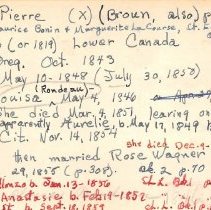 Pierre (X) (Broun, also) p
aurice Bonin & Marguerite LaCourse, Ct.
(or 1819) Lower Canada
Oreg. Oct. 1843
May 10-1848 (July 30, 1850)
(Rondeau)
Louisa May 4, 1846
she died Mar. 4, 1851, leaving on
apparently Aurelie, b. May 17, 1849
Cit. Nov. 14, 1854
she died Dec. 9-
then married Rose Wagner
29, 1855 (p. 308). bk. 2 p. 70
Alonzo b. Jan. 13-1856
Anastasie b. Feb. 19-1857
b. Sept. 18, 1859